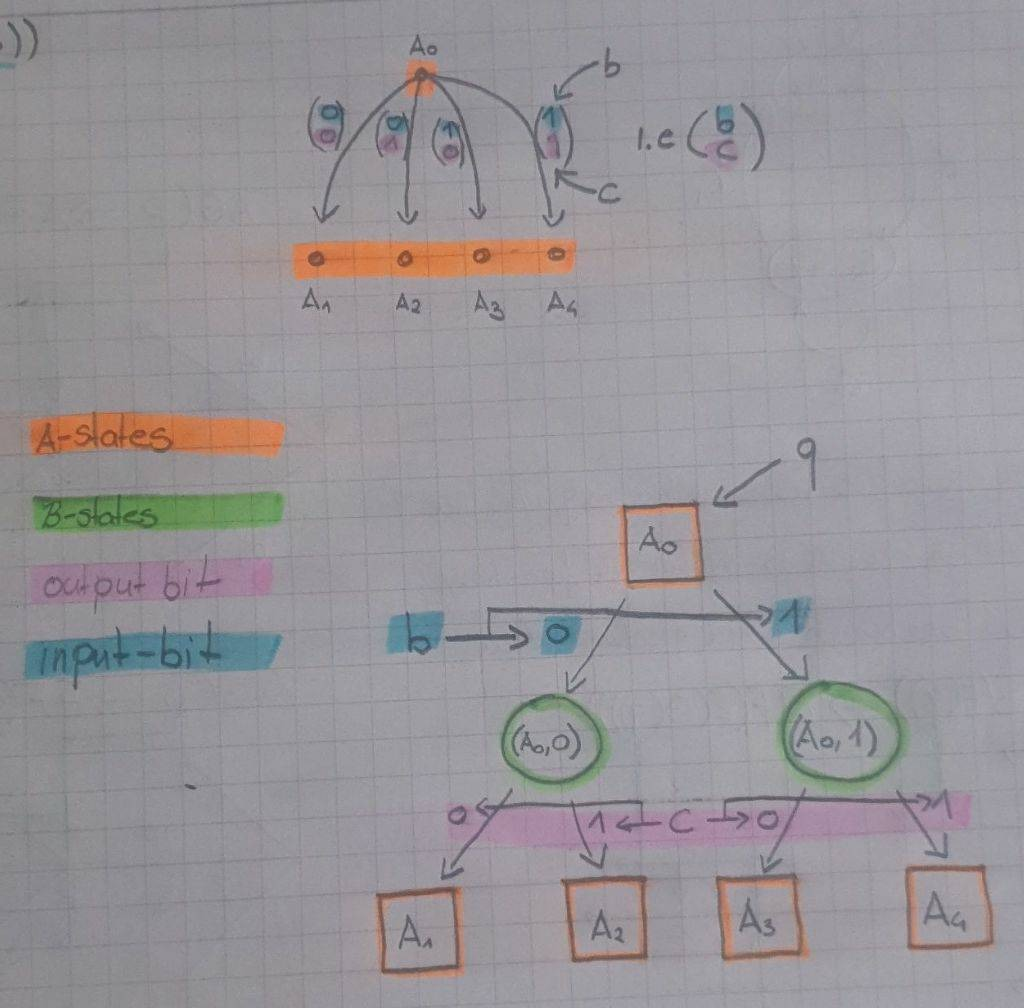 ))
A₀
b
(0 0) (0 1) (1 0) (1 1) i.e (b c)
c
A₁ A₂ A₃ A₄
A-states
B-states
output bit
input-bit
q
A₀
b 0 1
(A₀,0) (A₀,1)
0 1 C 0 1
A₁ A₂ A₃ A₄